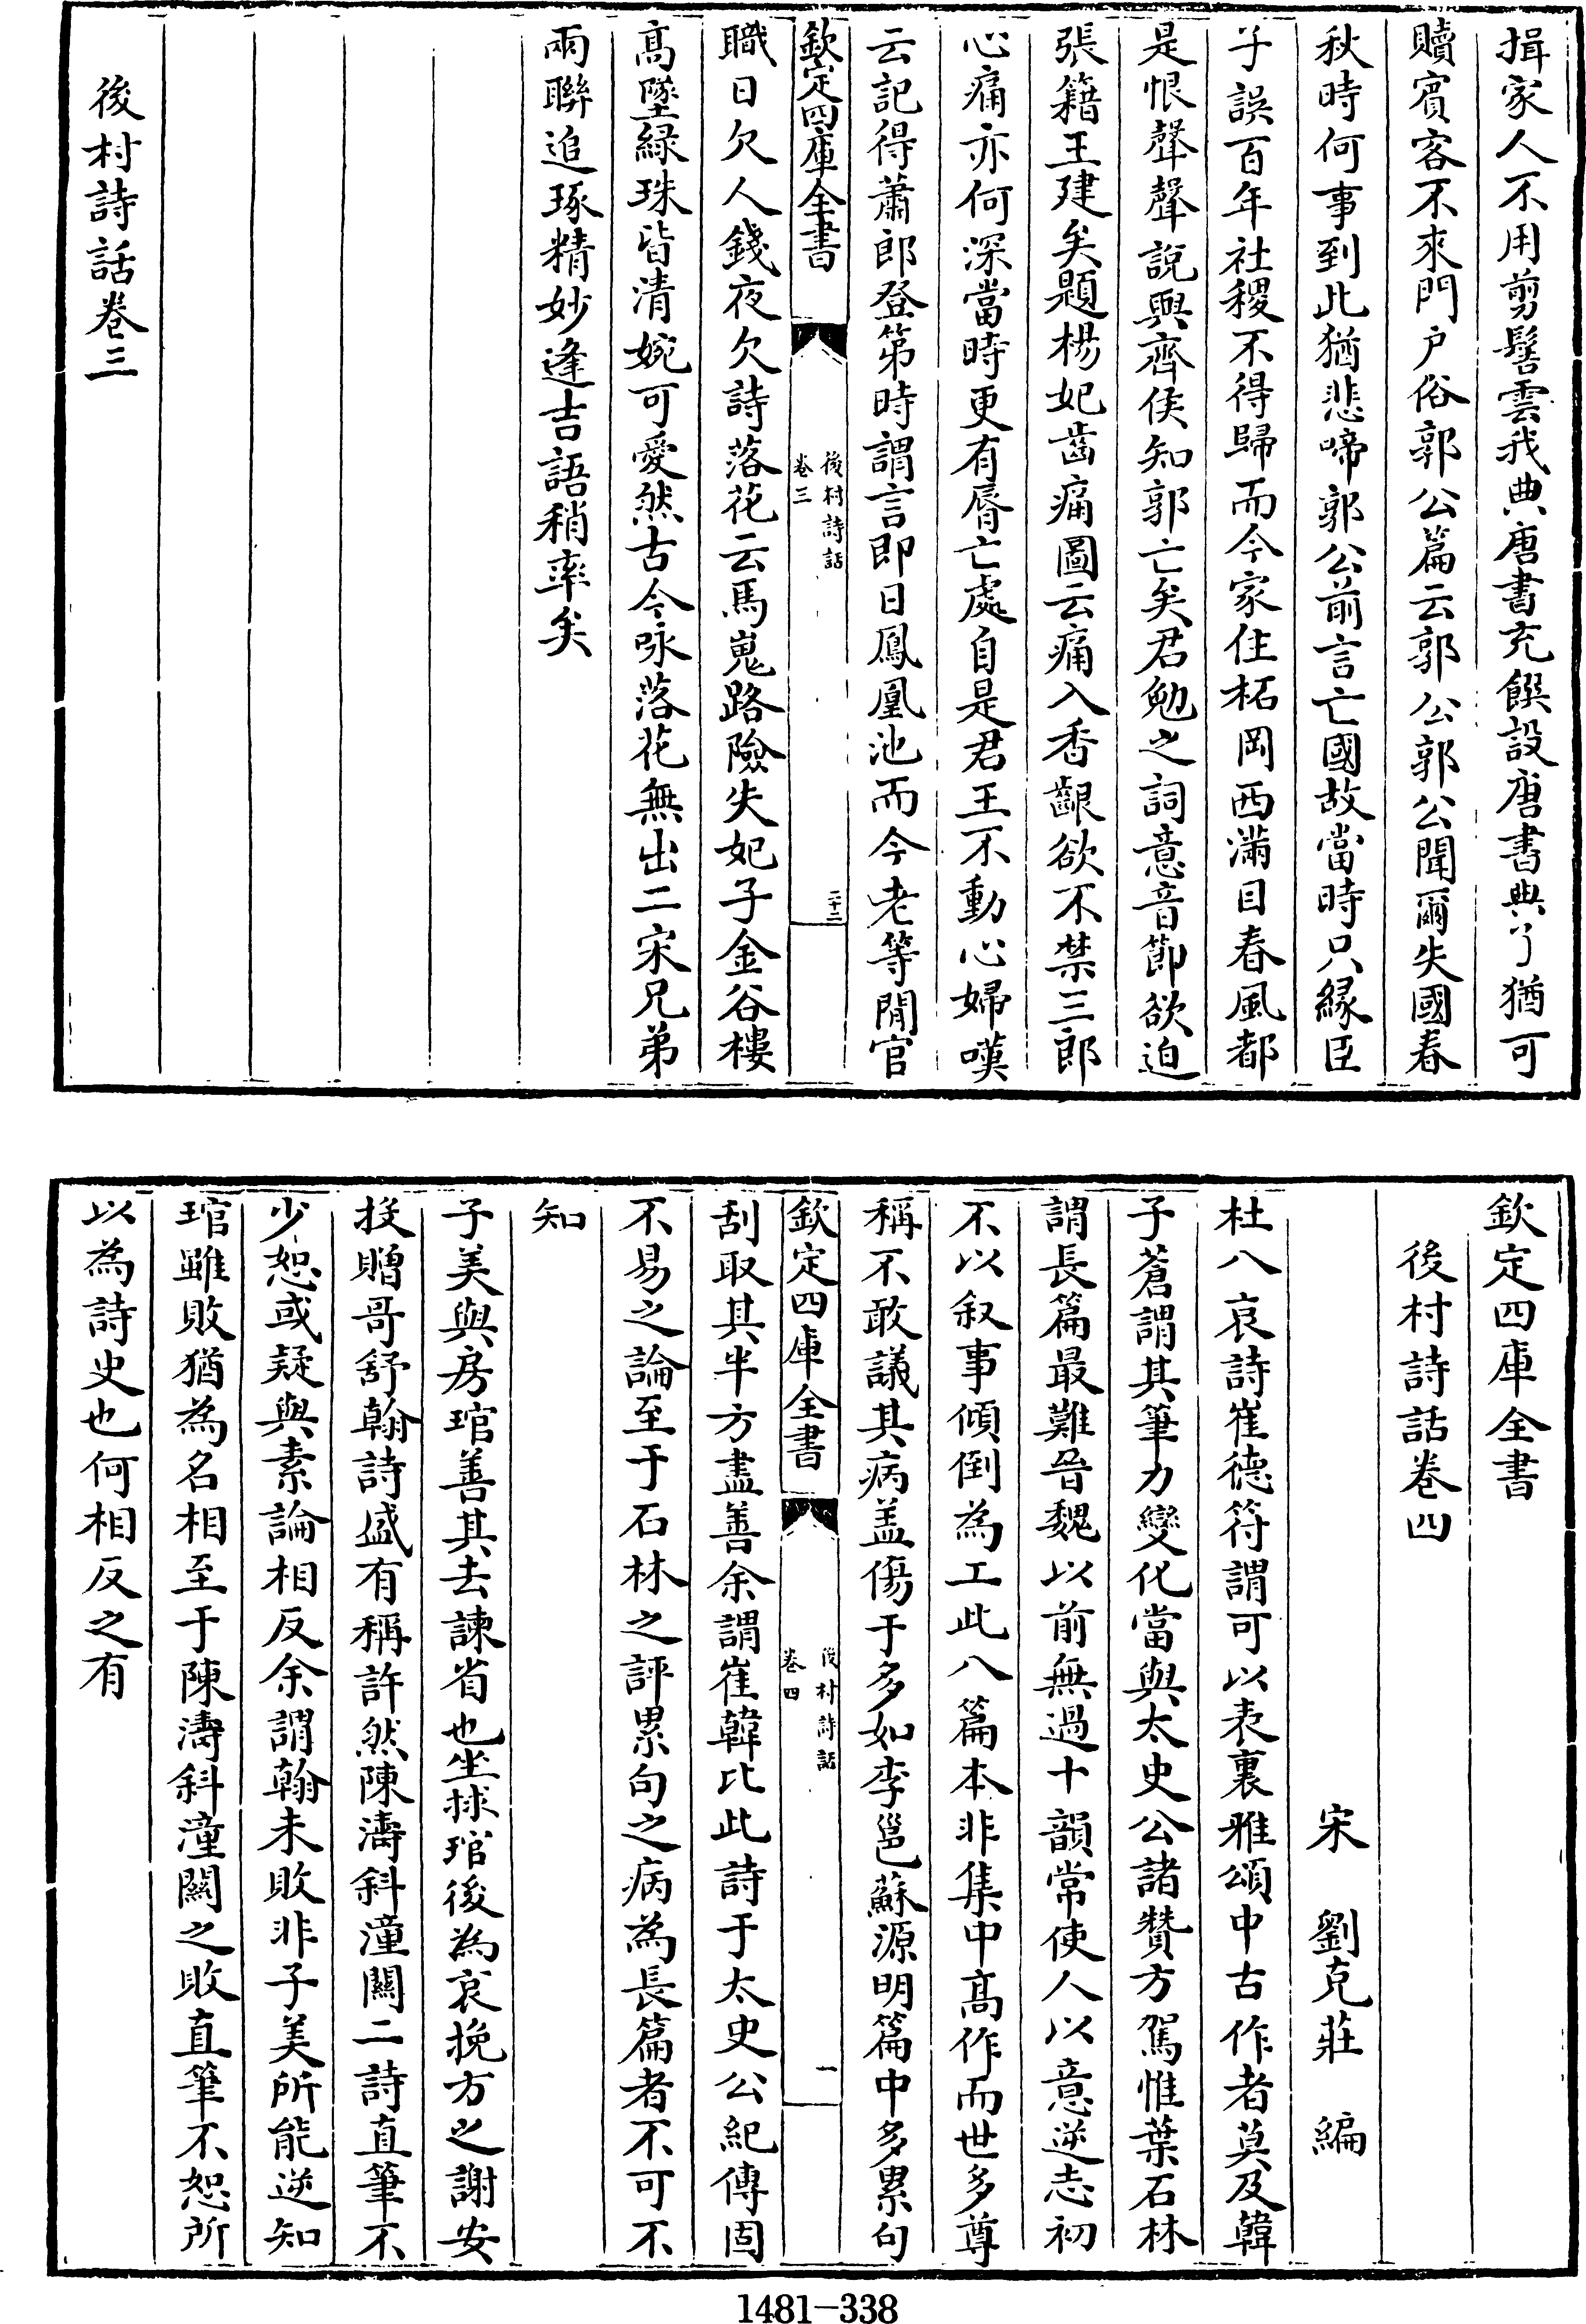 揖家人不用剪髻雲我典唐書充饌設唐書典了猶可
贖賓客不來門户俗郭公篇云郭公郭公聞爾失國春
秋時何事到此猶悲啼郭公前言亡國故當時只縁臣
子誤百年社稷不得歸而今家住柘岡西滿目春風都
是恨聲聲説與齊侯知郭亡矣君勉之詞意音節欲迫
張籍王建矣題楊妃齒痛圖云痛入香齦欲不禁三郎
心痛亦何深當時更有脣亡處自是君王不動心婦嘆
云記得蕭郎登第時謂言即日鳳凰池而今老等閒官
欽定四庫全書
後村詩話
卷三
二十二
職日欠人錢夜欠詩落花云馬嵬路險失妃子金谷樓
高墜緑珠皆清婉可愛然古今咏落花無出二宋兄弟
兩聯追琢精妙逢吉語稍率矣
後村詩話卷三
欽定四庫全書
後村詩話卷四
宋 劉克莊 編
杜八哀詩崔德符謂可以表裏雅頌中古作者莫及韓
子蒼謂其筆力變化當與太史公諸贊方駕惟葉石林
謂長篇最難晉魏以前無過十韻常使人以意逆志初
不以叙事傾倒為工此八篇本非集中高作而世多尊
稱不敢議其病盖傷于多如李邕蘇源明篇中多累句
欽定四庫全書
後村詩話
卷四
一
刮取其半方盡善余謂崔韓比此詩于太史公紀傳固
不易之論至于石林之評累句之病為長篇者不可不
知
子美與房琯善其去諫省也坐捄琯後為哀挽方之謝安
投贈哥舒翰詩盛有稱許然陳濤斜潼關二詩直筆不
少恕或疑與素論相反余謂翰未敗非子美所能逆知
琯雖敗猶為名相至于陳濤斜潼關之敗直筆不恕所
以為詩史也何相反之有
1481-338